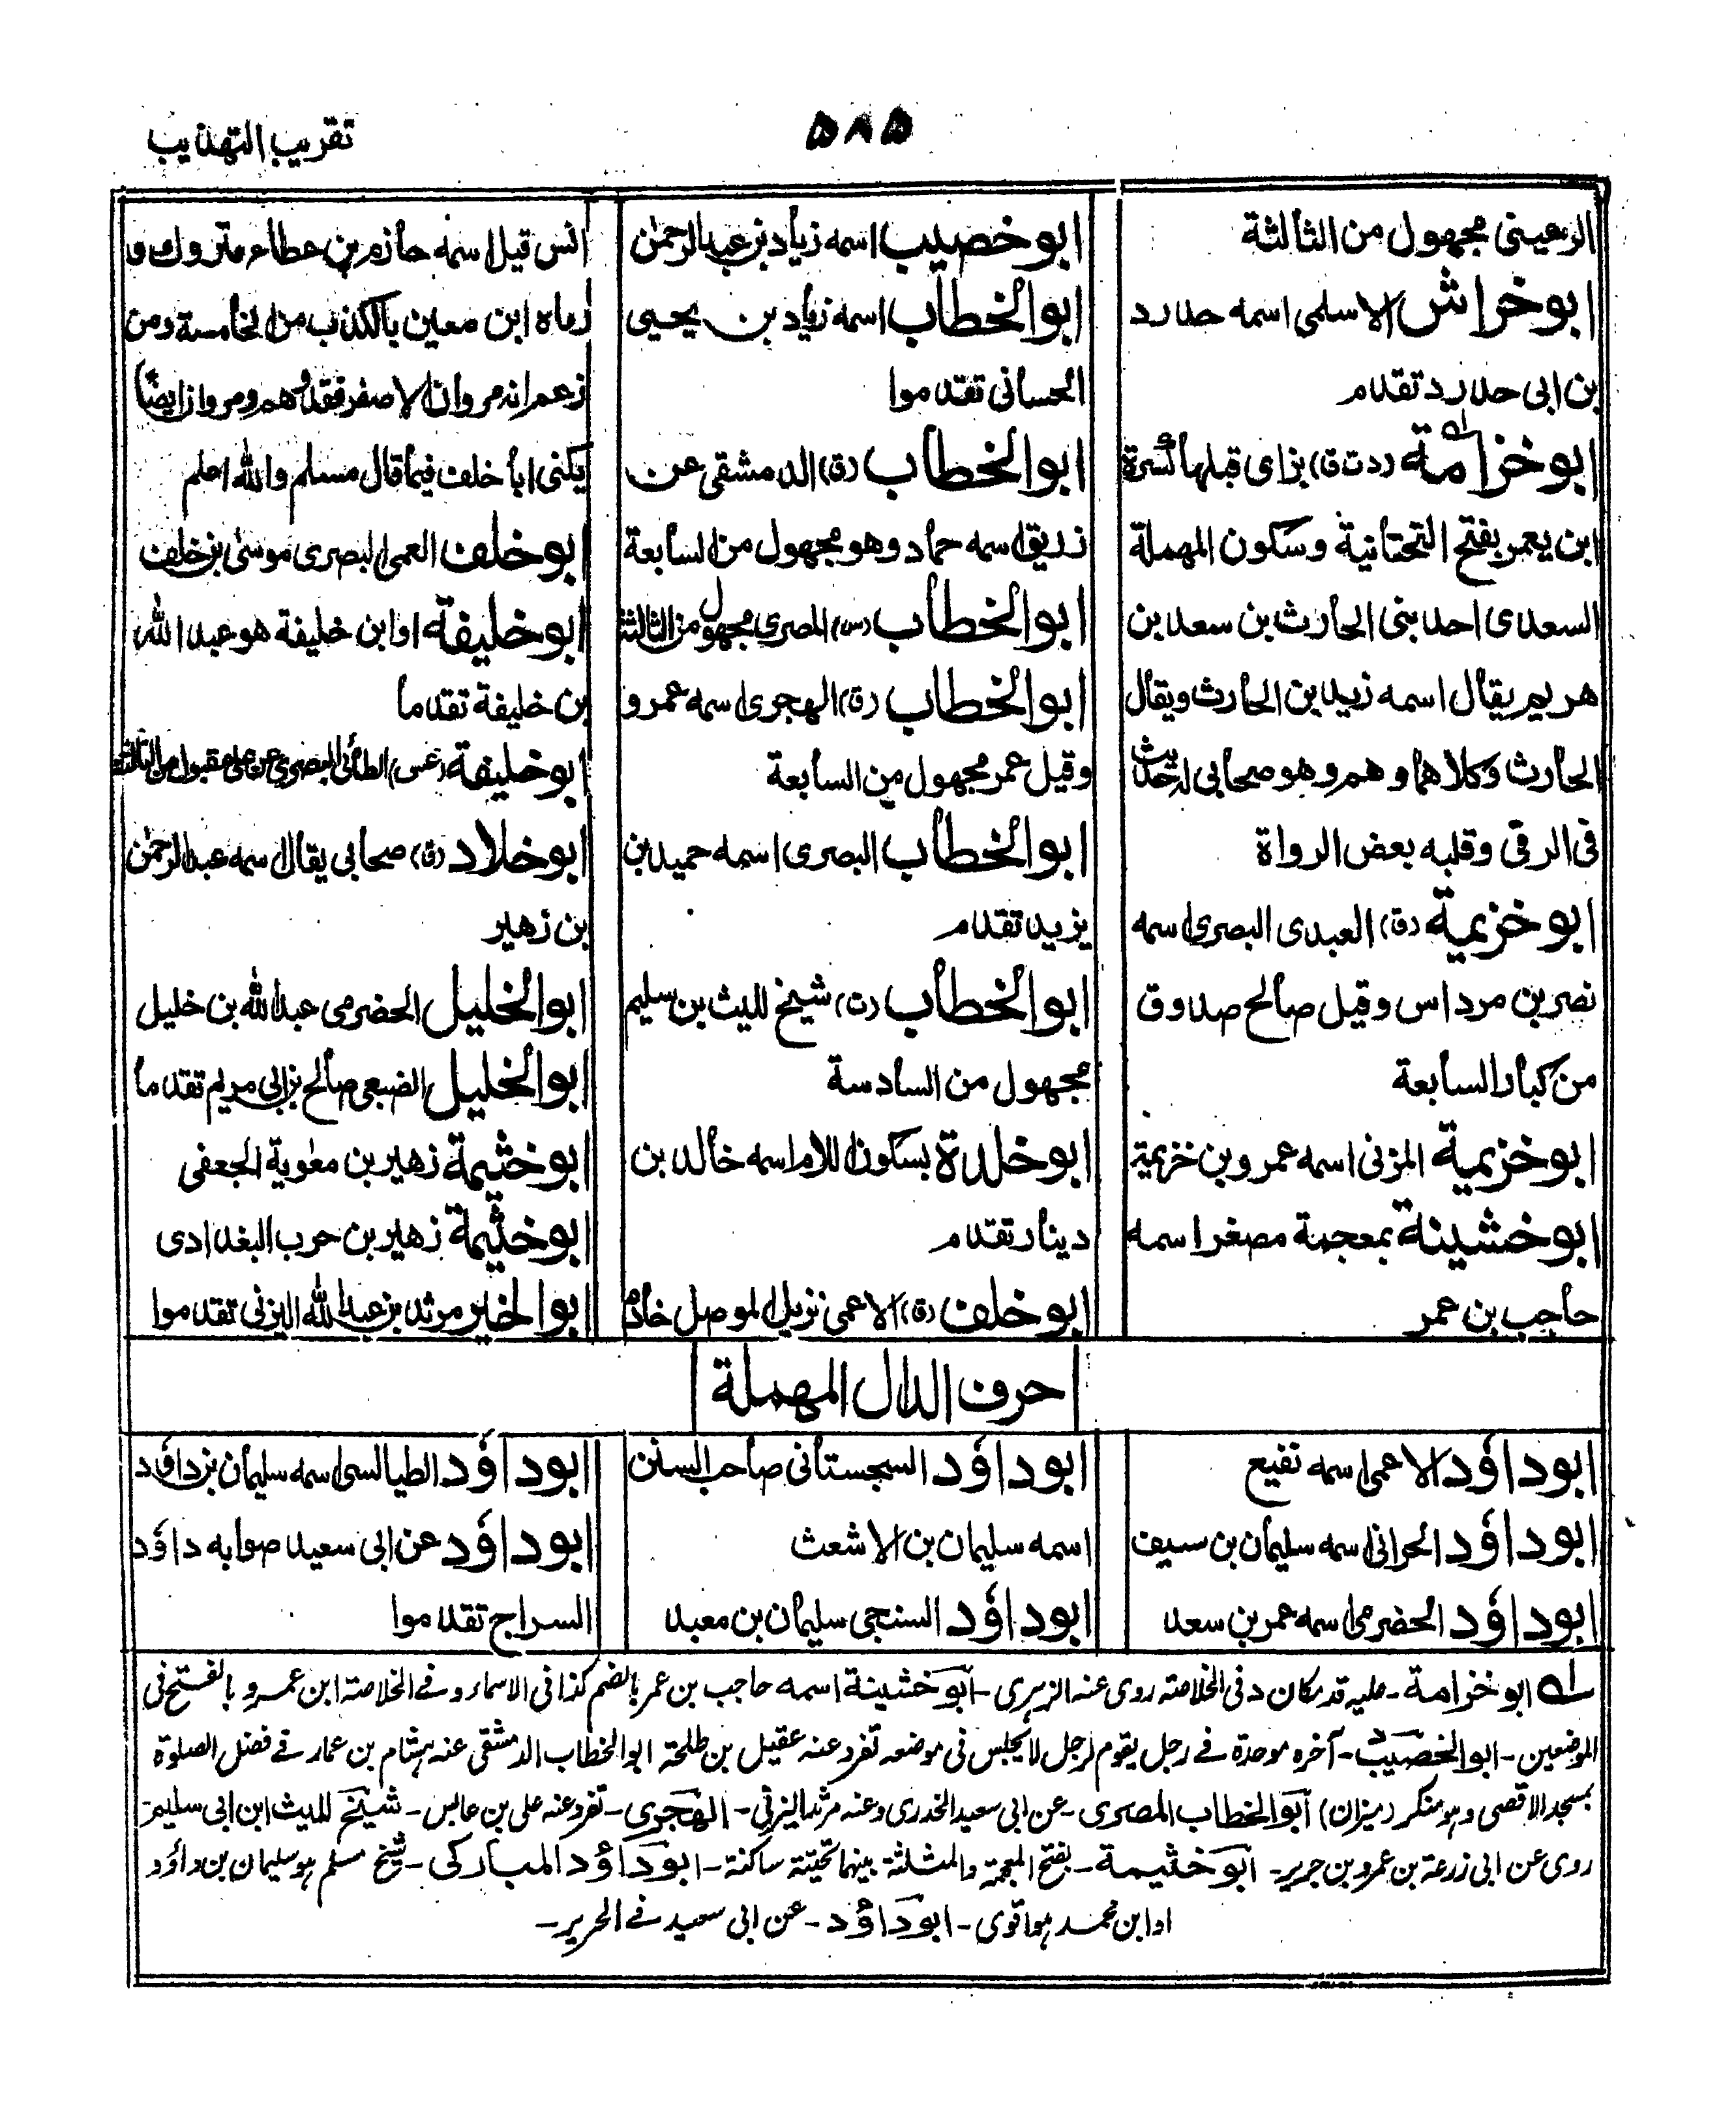 تقريب التهذيب
۵۸۵
الرعيني مجهول من الثالثة
ابو خراش الاسلمى اسمه حدرد
بن ابى حدرد تقدم
ابو خزامة (د ت ق) بزاى قبلها كسرة
ابن يعمر بفتح التحتانية وسكون المهملة
السعدى احد بنى الحارث بن سعد بن
هريم يقال اسمه زيد بن الحارث ويقال
الحارث وكلاهما وهم وهو صحابى له حديث
فى الرقى وقلبه بعض الرواة
ابو خزيمة (ق) العبدى البصرى اسمه
نصر بن مرداس وقيل صالح صدوق
من كبار السابعة
ابو خزيمة المزنى اسمه عمرو بن خزيمة
ابو خشينة بمعجمة مصغر اسمه
حاجب بن عمر
ابو خصيب اسمه زياد بن عبد الرحمٰن
ابو الخطاب اسمه زياد بن يحيى
الحسانى تقدموا
ابو الخطاب (ق) الدمشقى عن
زريق اسمه حماد وهو مجهول من السابعة
ابو الخطاب (س) المصرى مجهول من الثالثة
ابو الخطاب (ق) الهجرى اسمه عمرو
وقيل عمر مجهول من السابعة
ابو الخطاب البصرى اسمه حميد بن
يزيد تقدم
ابو الخطاب (ت) شيخ لليث بن سليم
مجهول من السادسة
ابو خلدة بسكون اللام اسمه خالد بن
دينار تقدم
ابو خلف (ق) الاعمى نزيل الموصل خادم
انس قيل اسمه حازم بن عطاء متروك و
رماه ابن معين بالكذب من الخامسة ومن
زعم انه مروان الاصفر فقد وهم ومروان ايضًا
يكنى ابا خلف فيما قال مسلم والله اعلم
ابو خلف العمى البصرى موسىٰ بن خلف
ابو خليفة او ابن خليفة هو عبد الله
بن خليفة تقدما
ابو خليفة (عس) الطائى البصرى عن على مقبول من الثالثة
ابو خلاد (ق) صحابى يقال اسمه عبد الرحمٰن
بن زهير
ابو الخليل الحضرمى عبد الله بن خليل
ابو الخليل الضبعى صالح بن ابى مريم تقدما
ابو خثيمة زهير بن معٰوية الجعفى
ابو خثيمة زهير بن حرب البغدادى
ابو الخير مرثد بن عبد الله اليزنى تقدموا
حرف الدال المهملة
ابو داؤد الاعمى اسمه نفيع
ابو داؤد الحرانى اسمه سليمان بن سيف
ابو داؤد الحضرمى اسمه عمر بن سعد
ابو داؤد السجستانى صاحب السنن
اسمه سليمان بن الاشعث
ابو داؤد السنجى سليمان بن معبد
ابو داؤد الطيالسى اسمه سليمان بن داؤد
ابو داؤد عن ابى سعيد صوابه داؤد
السراج تقدموا
لـه ابو خزامة ـ عليه قد مكان د فى الخلاصة روى عنه الزہرى ـ ابو خشينة اسمه حاجب بن عمر بالضم كذا فى الاسماء وفے الخلاصة ابن عمرو بالفتح فى
الموضعين ـ ابو الخصيب ـ آخره موحدة فے رجل يقوم لرجل لا يجلس فى موضعه تفرد عنه عقيل بن طلحة ابو الخطاب الدمشقى عنه ہشام بن عمار فے فضل الصلوة
بمسجد الاقصى وہو منكر (ميزان) ابو الخطاب المصرى ـ عن ابى سعيد الخدرى وعنه مرثد اليزنى ـ الهجرى ـ تفرد عنه على بن عابس ـ شيخ لليث ابن ابى سليم
روى عن ابى زرعة بن عمرو بن جرير ـ ابو خثيمة ـ بفتح المعجمة والمثلثة بينهما تحتية ساكنة ـ ابو داؤد المباركى ـ شيخ مسلم ہو سليمان بن داؤد
او ابن محمد ہو اقوى ـ ابو داؤد ـ عن ابى سعيد فے الحرير ـ